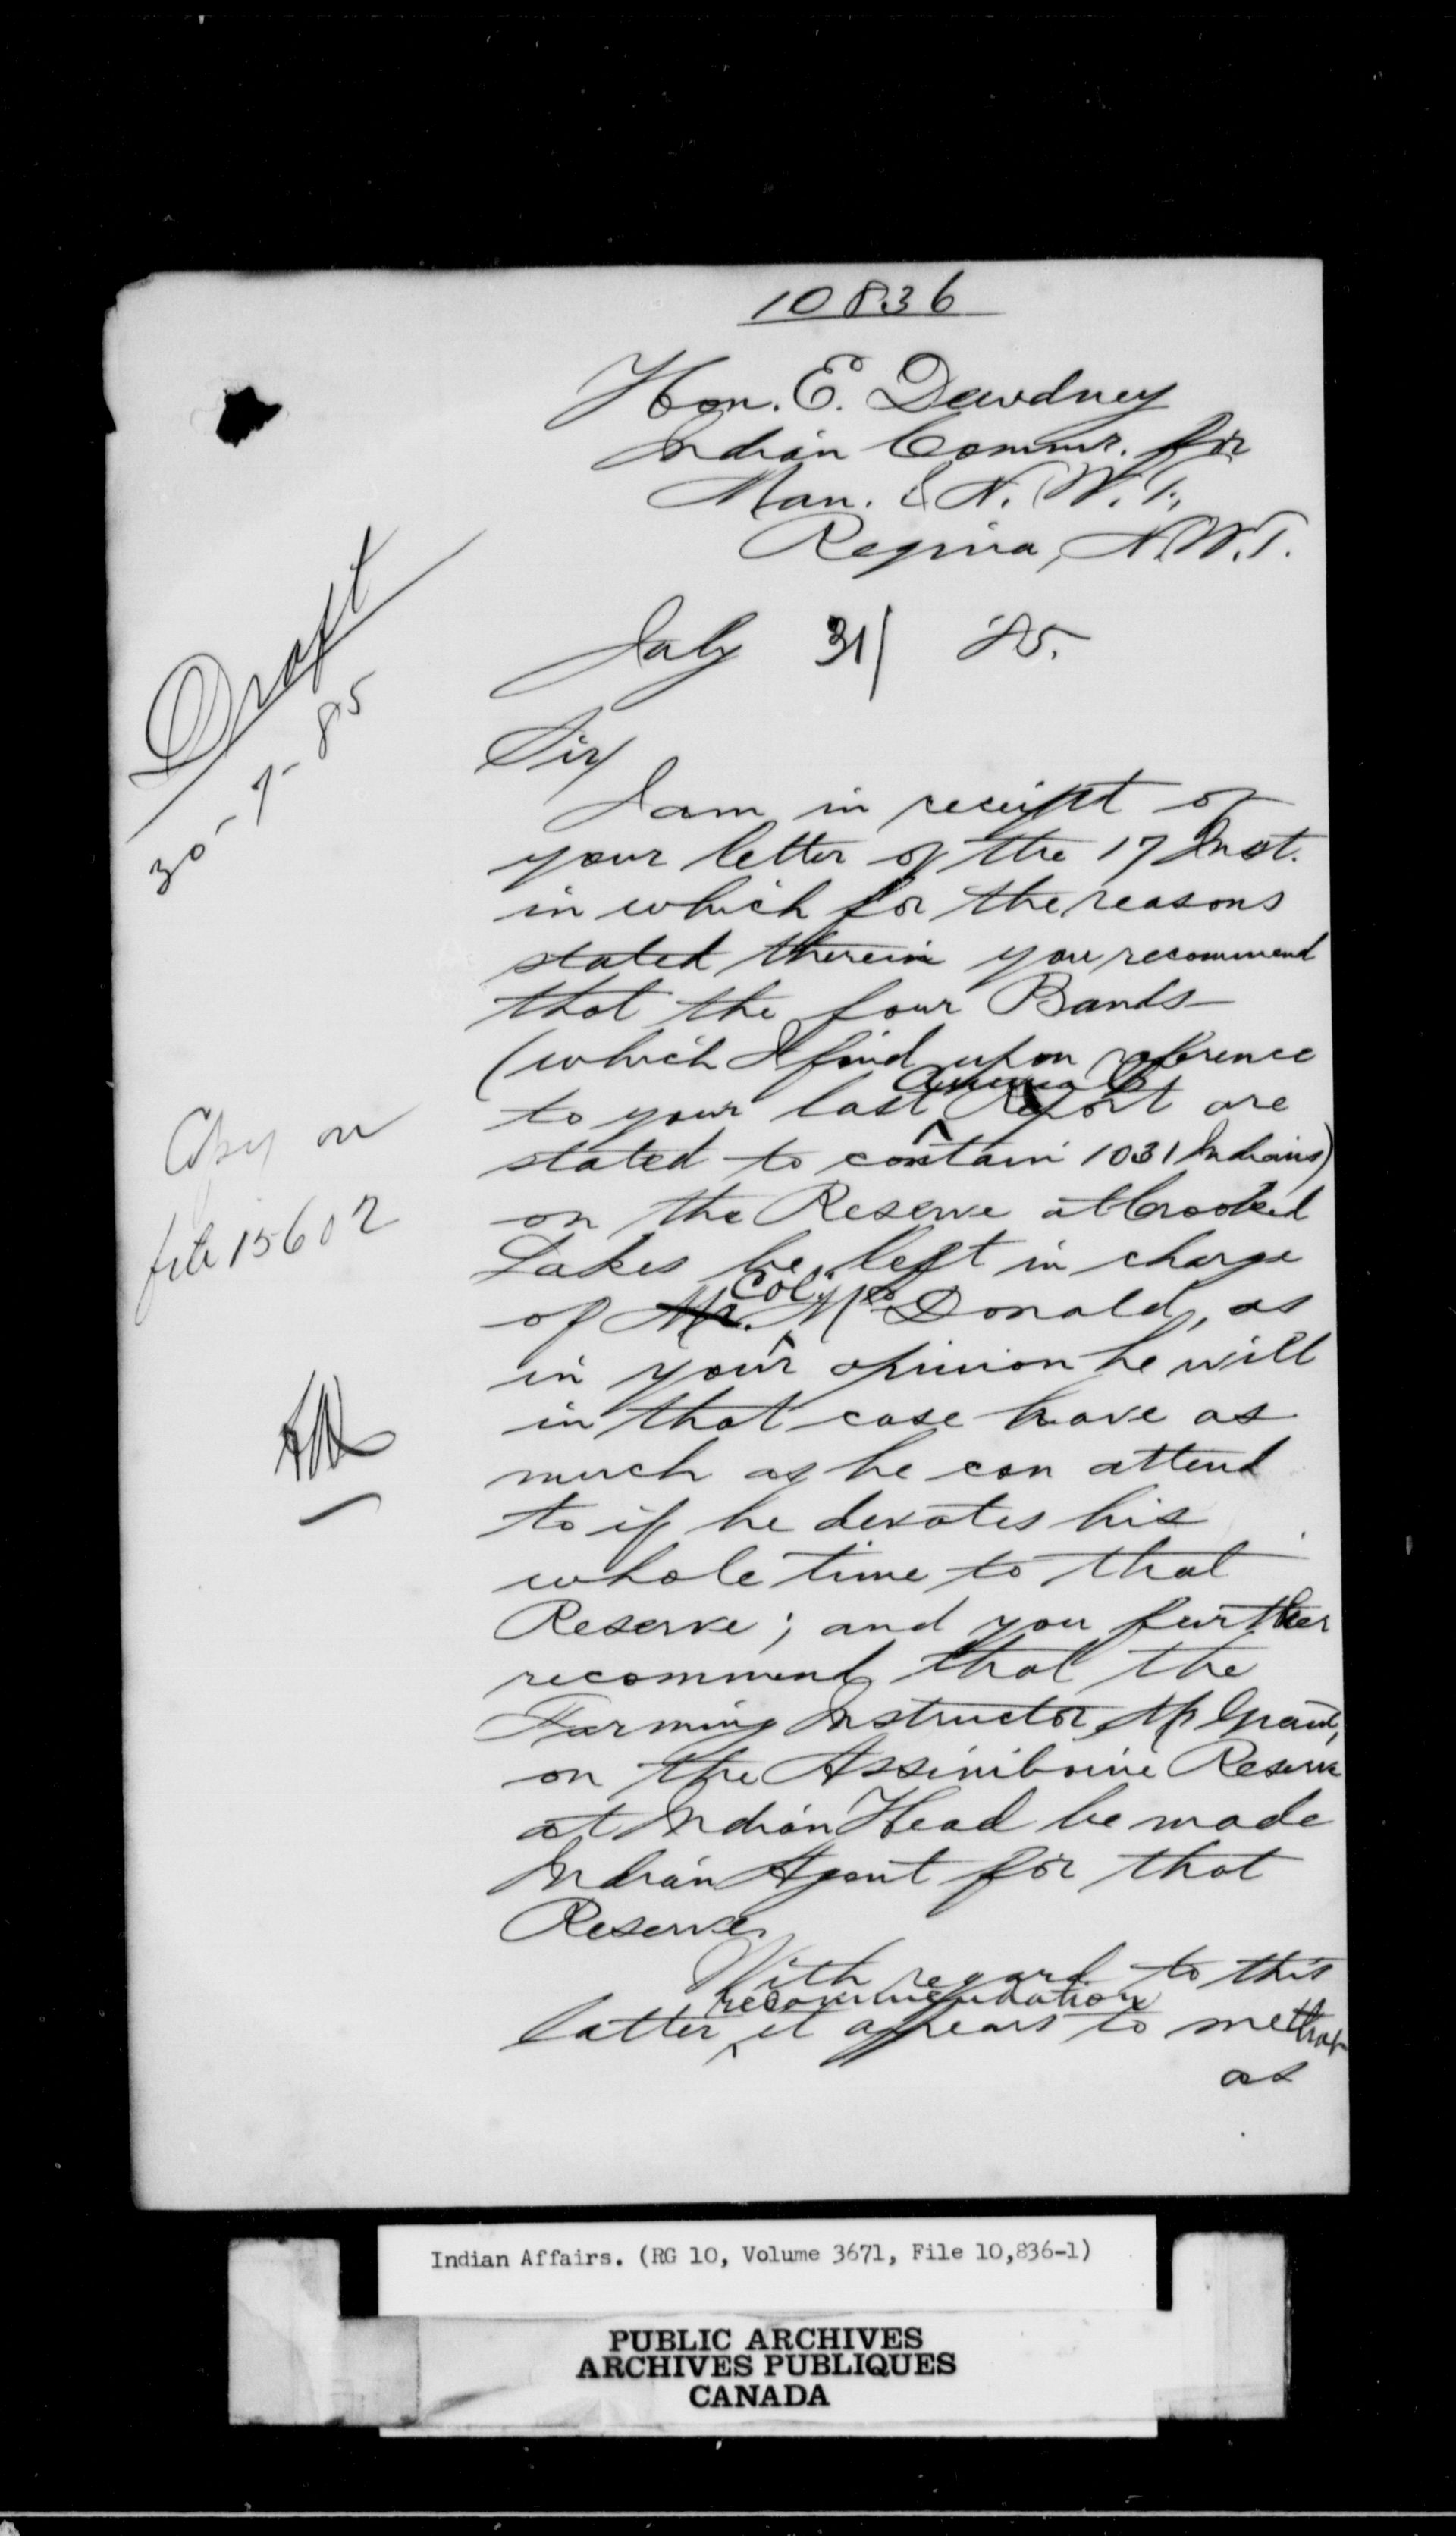 10836
Hon. E. Dewdney
Indian Commr. for
Man. & N. W. T.,
Regina, N.W.T.
July 31/ 85.
Draft
30-7-85
Sir,
I am in receipt of
your letter of the 17 Inst.
in which for the reasons
stated therein you recommend
that the four Bands
(which I find upon reference
to your last Annual Report are
stated to contain 1031 Indians)
on the Reserve at Crooked
Lakes be left in charge
of Mr. Col. McDonald, as
in your opinion he will
in that case have as
much as he can attend
to if he devotes his
whole time to that
Reserve; and you further
recommend that the
Farming Instructor, Mr Grant,
on the Assiniboine Reserve
at Indian Head be made
Indian Agent for that
Reserve.
With regard to this
latter recommendation it appears to me that
as
Copy on
file 15602
Indian Affairs. (RG 10, Volume 3671, File 10,836-1)
PUBLIC ARCHIVES
ARCHIVES PUBLIQUES
CANADA